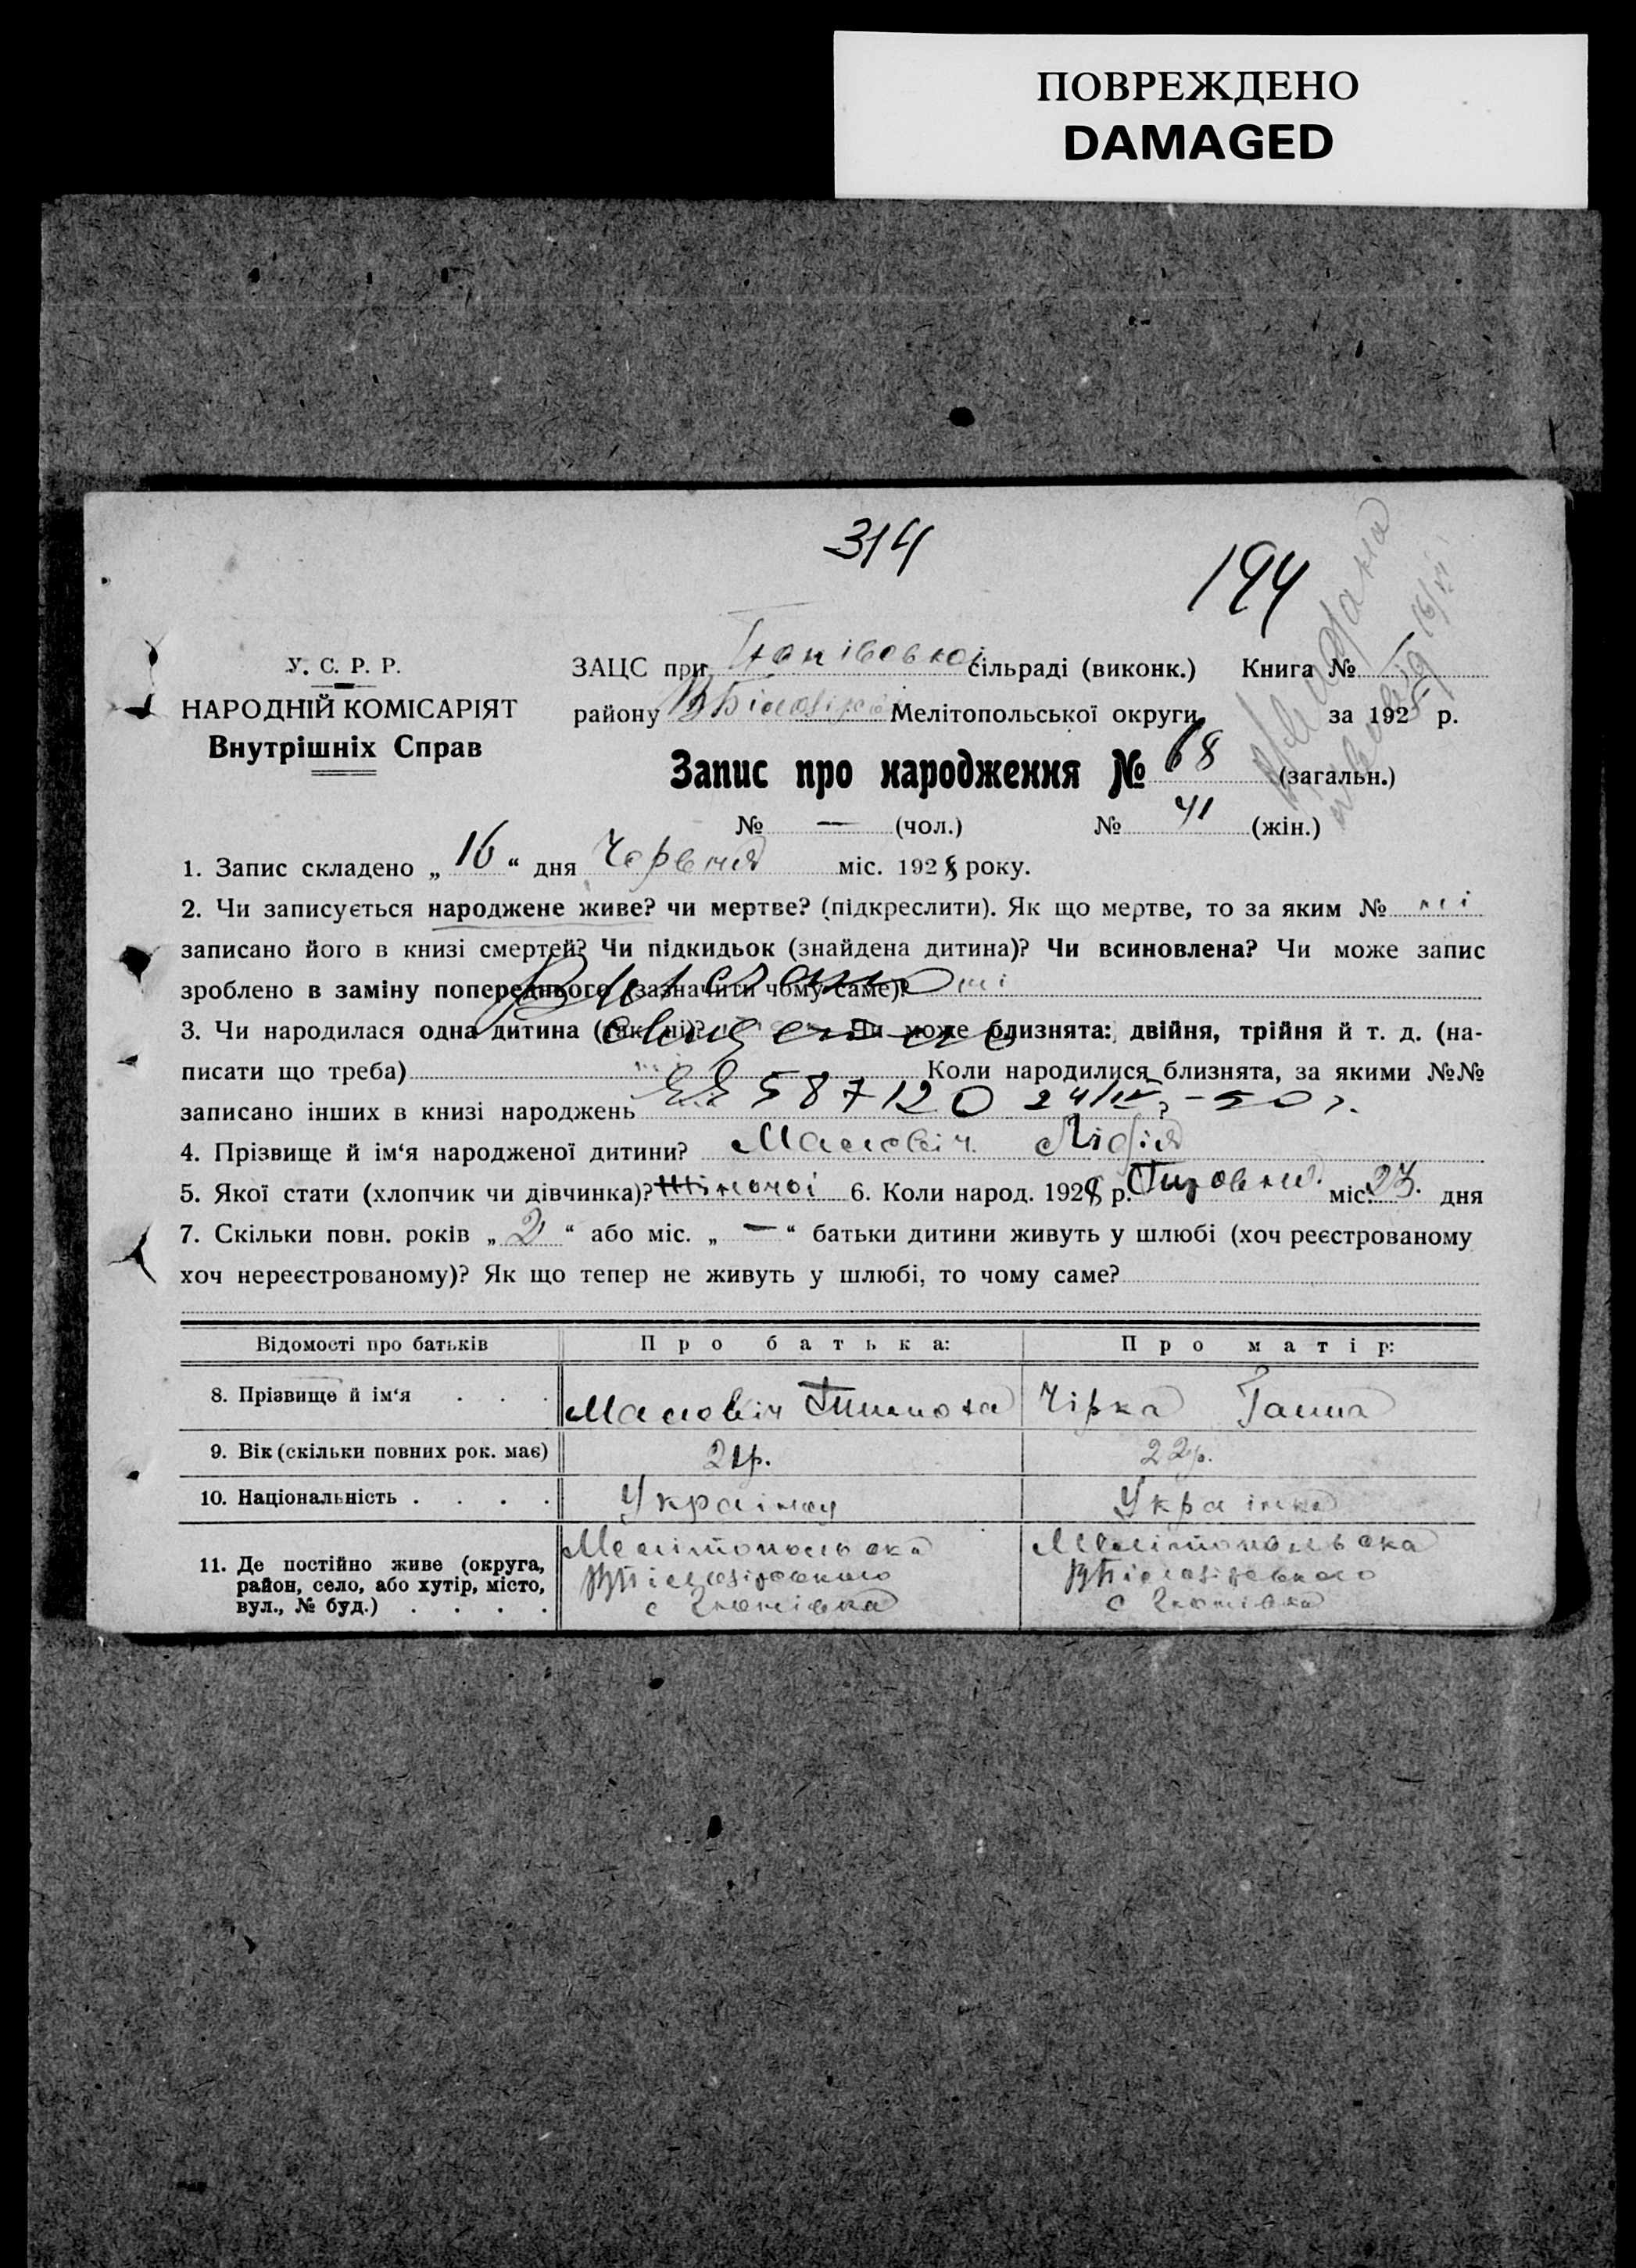 ПОВРЕЖДЕНО
DAMAGED
314
194
У. С. Р. Р.
НАРОДНІЙ КОМІСАРІЯТ
Внутрішніх Справ
ЗАЦС при сільраді (виконк.) Книга № 1
району Мелітопольської округи за 192 р.
Запис про народження № 68 (загальн.)
№ — (чол.) № 41 (жін.)
1. Запис складено „ 16 “ дня Червня міс. 1928 року.
2. Чи записується народжене живе? чи мертве? (підкреслити). Як що мертве, то за яким № ні
записано його в книзі смертей? Чи підкидьок (знайдена дитина)? Чи всиновлена? Чи може запис
зроблено в заміну попереднього (зазначити чому саме)? ні
3. Чи народилася одна дитина (так, ні)? Чи може близнята: двійня, трійня й т. д. (на-
писати що треба) Коли народилися близнята, за якими №№
записано інших в книзі народжень 587120 24/IV - 50 г.
4. Прізвище й ім‘я народженої дитини? Малович Лідія
5. Якої стати (хлопчик чи дівчинка)? Жіночої 6. Коли народ. 1928 р. міс. 23. дня
7. Скільки повн. років „ 2 “ або міс. „ — “ батьки дитини живуть у шлюбі (хоч реєстрованому
хоч нереєстрованому)? Як що тепер не живуть у шлюбі, то чому саме?
Відомості про батьків Про батька: Про матір:
8. Прізвище й ім‘я . . . Малович Тимоха Чірка Ганна
9. Вік (скільки повних рок. має) 21р. 22р.
10. Національність . . . . Українец Українка
11. Де постійно живе (округа, Мелітопольска Мелітопольска
район, село, або хутір, місто, ВБілозірського ВБілозірського
вул., № буд.) . . . . с с